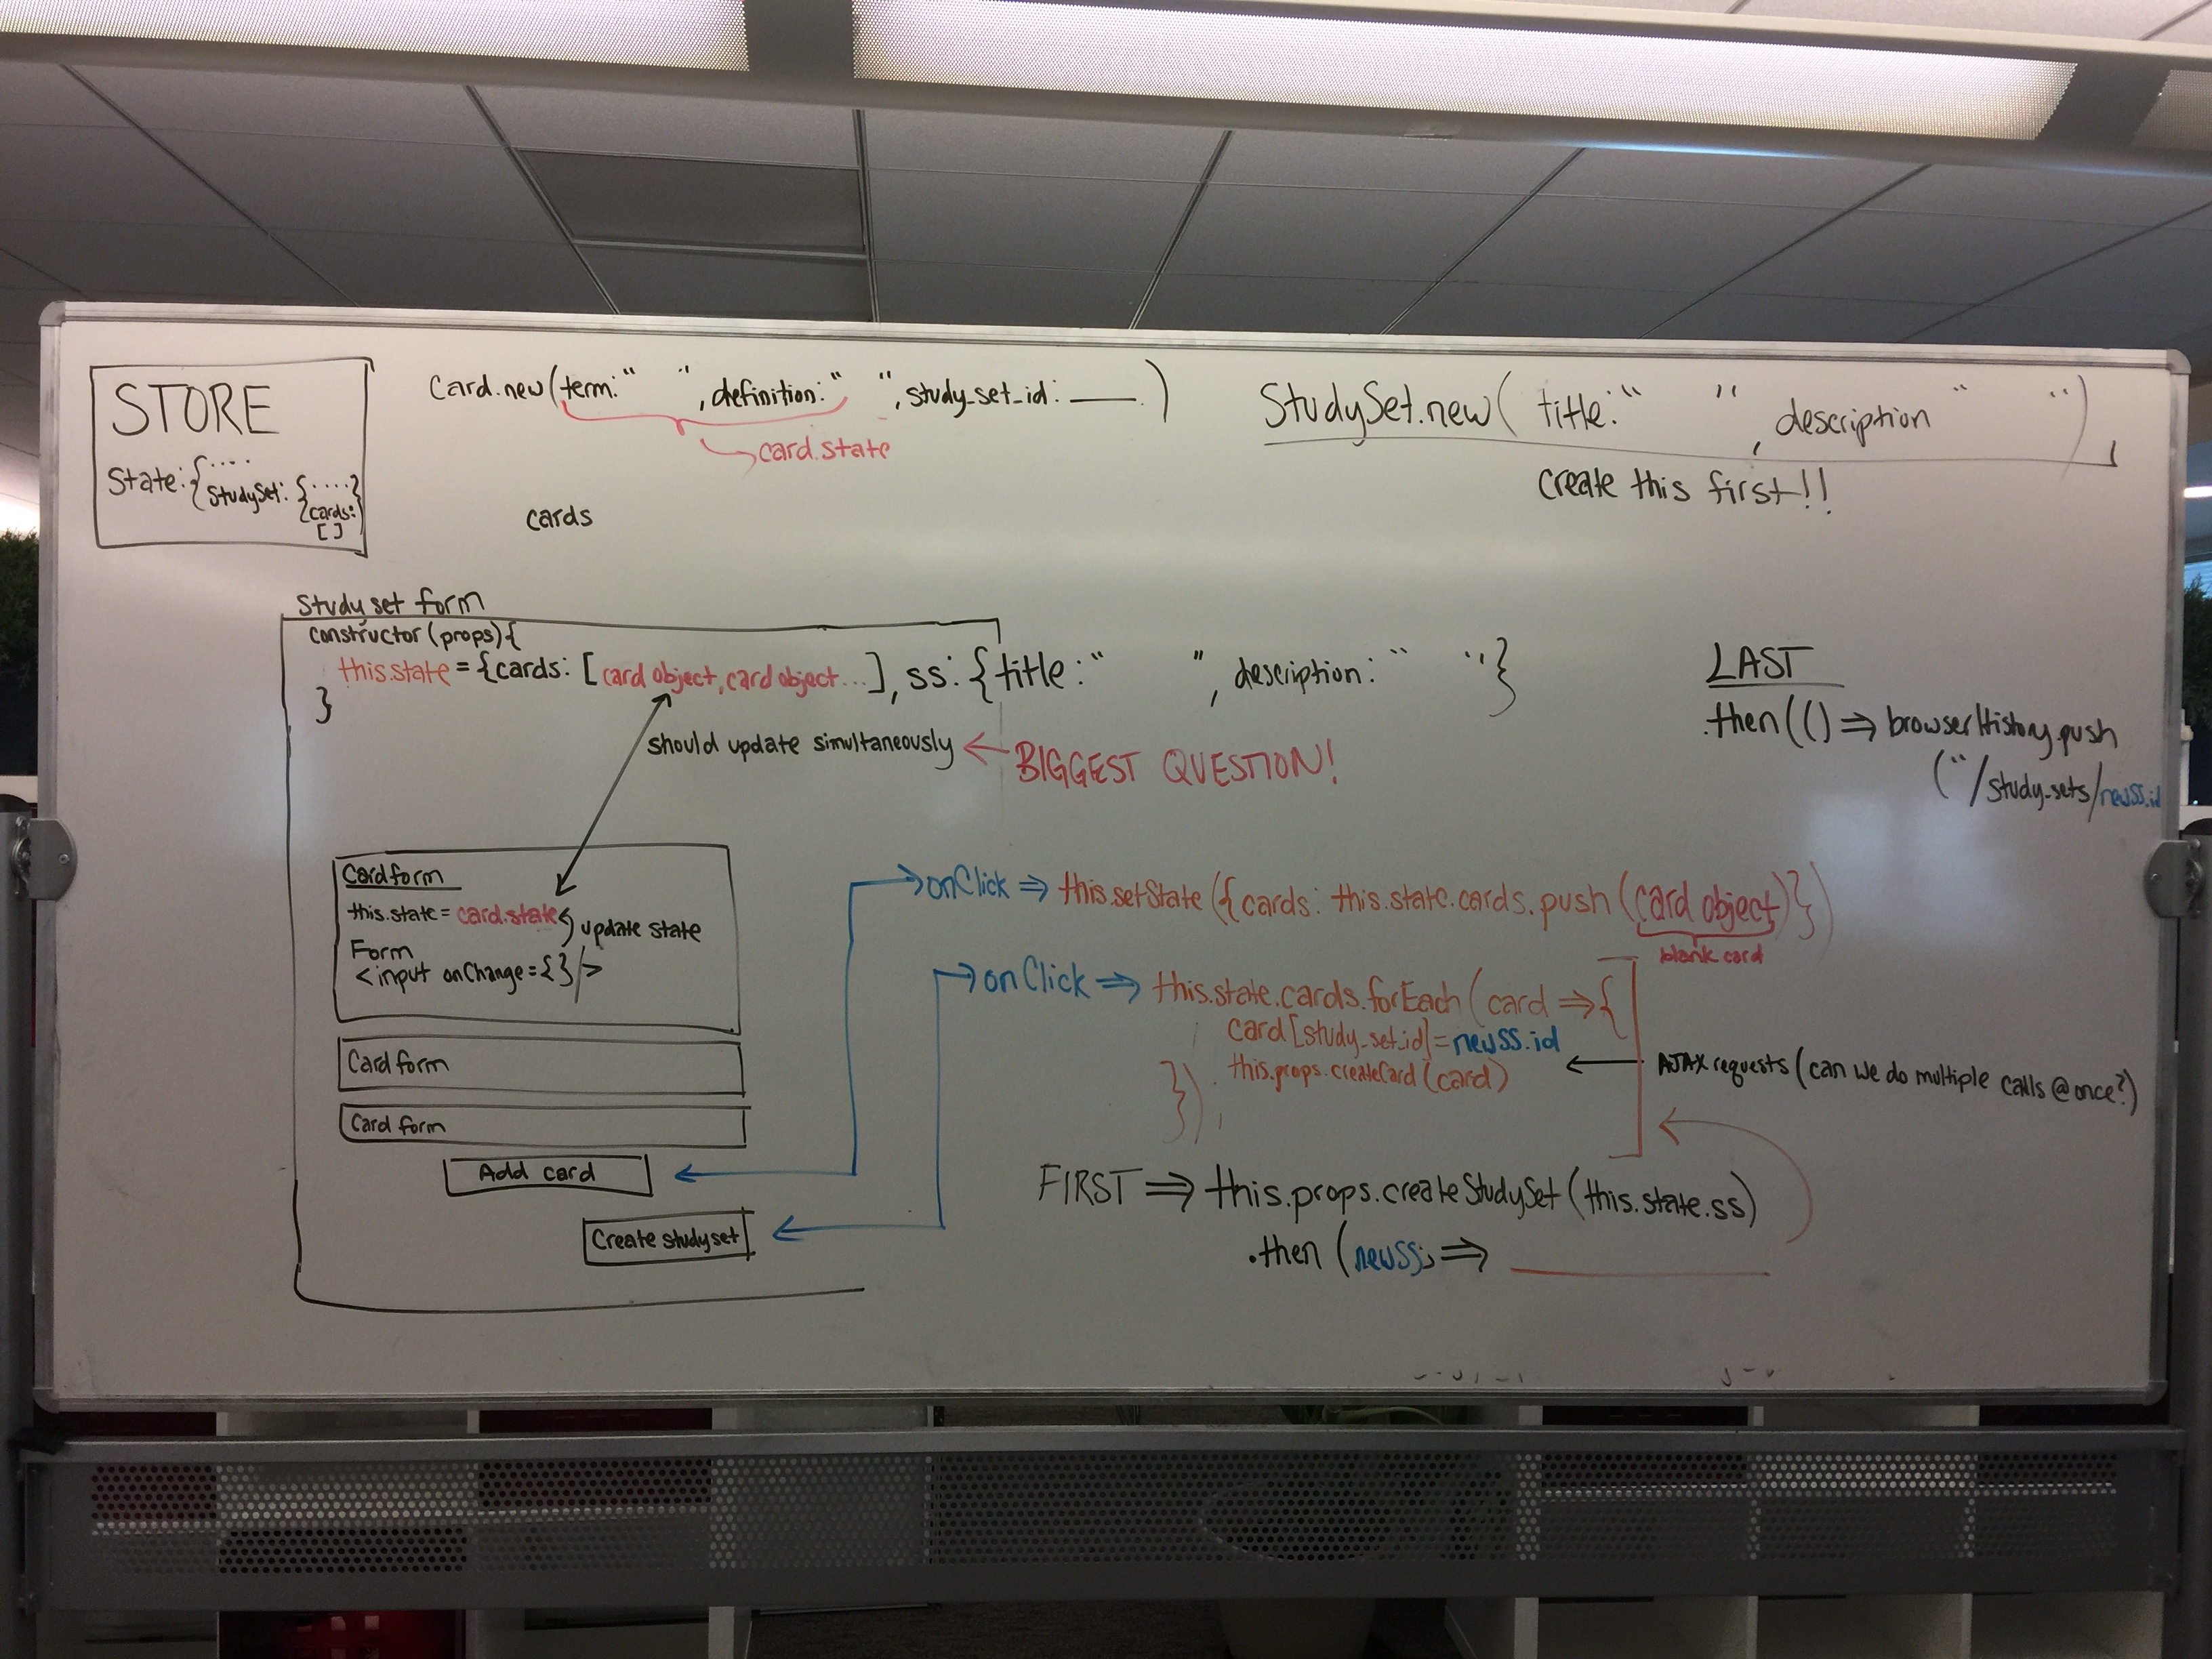 STORE
State: {....
StudySet: {....}
{cards:
[]
Card.new(term: " ", definition: " ", study_set_id: ____)
card.state
cards
StudySet.new( title: " ", description " ")
create this first!!
Study set form
constructor(props){
this.state = {cards: [card object, card object...], ss: {title: " ", description: " "}
}
should update simultaneously ← BIGGEST QUESTION!
LAST
.then(() => browserHistory.push
("/study-sets/newSS.id
Card form
this.state = card.state
update state
Form
<input onChange={}/>
Card form
Card form
Add card
Create studyset
onClick => this.setState({cards: this.state.cards.push(card object)})
blank card
onClick => this.state.cards.forEach(card => {
card[study_set_id] = newSS.id
this.props.createCard(card)
});
← AJAX requests (can we do multiple calls @ once?)
FIRST => this.props.createStudySet(this.state.ss)
.then (newSS => ____